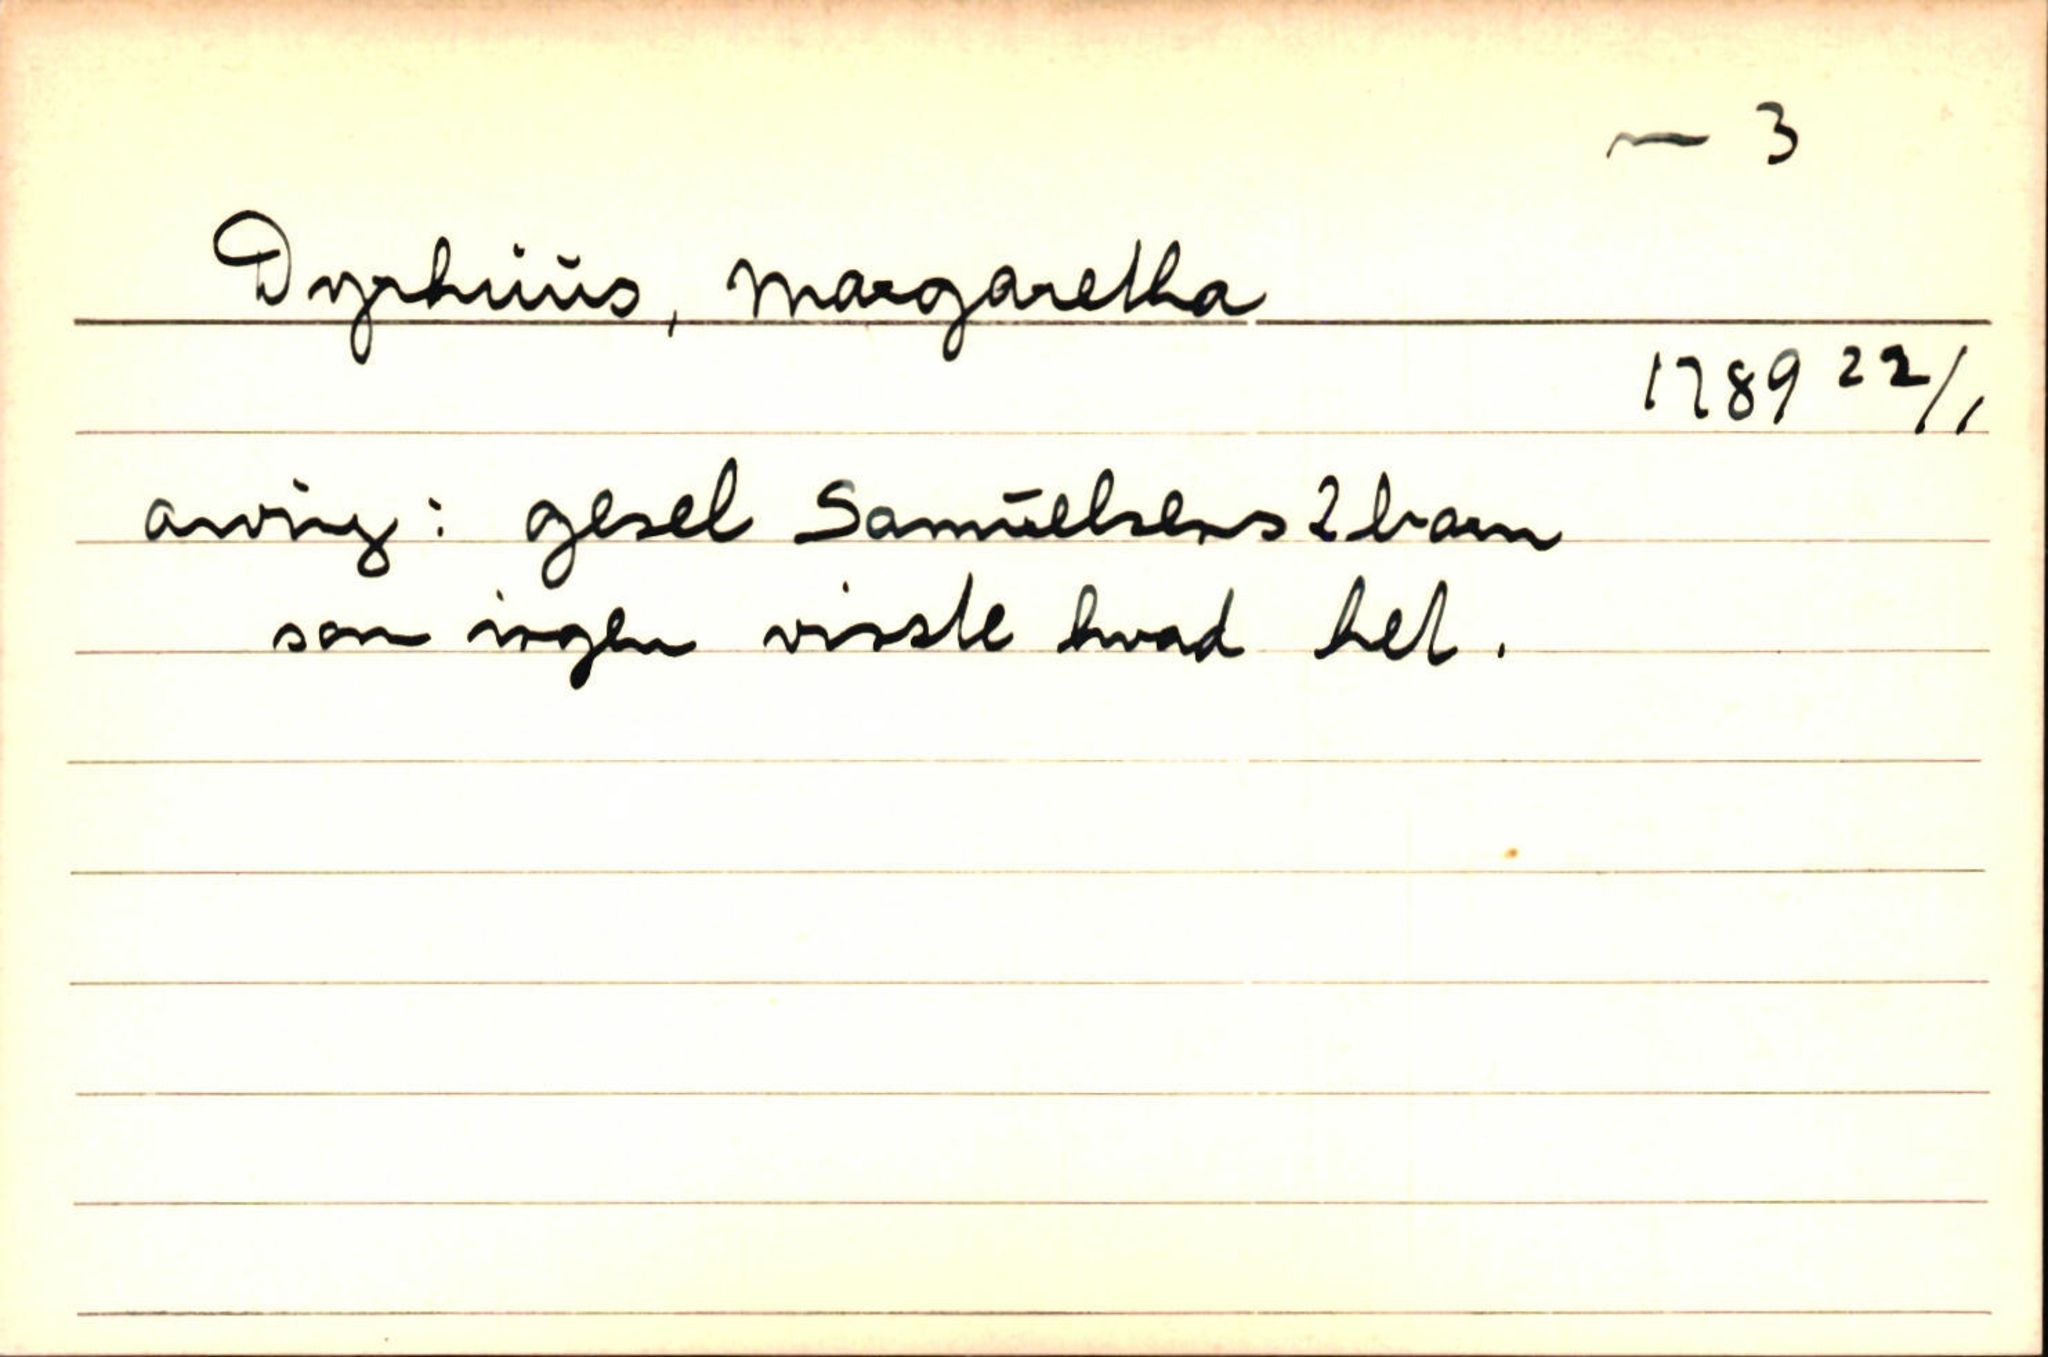 ~ 3
Dyrhuus, Margaretha
1789 22/1
arving: gesel Samuelsens 2 barn
som ingen visste hvad het.